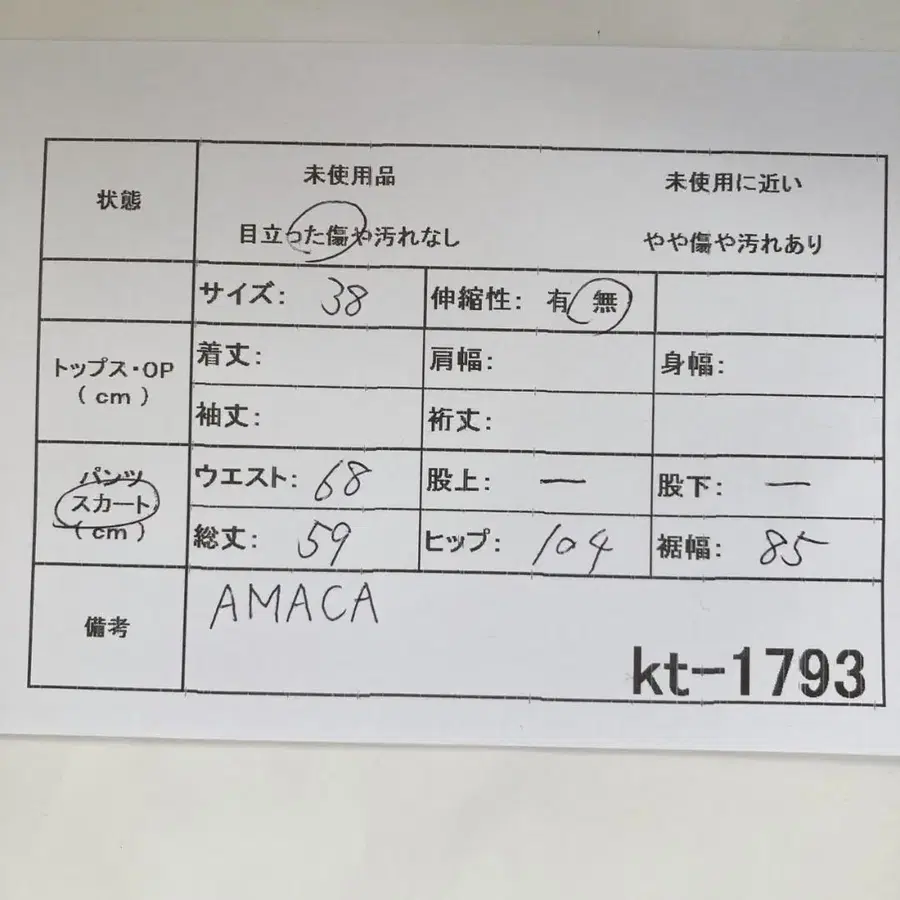 状態
未使用品 未使用に近い
目立った傷や汚れなし やや傷や汚れあり
サイズ: 38 伸縮性: 有 無
トップス・OP
(cm)
着丈: 肩幅: 身幅:
袖丈: 裄丈:
パンツ
スカート
(cm)
ウエスト: 68 股上: — 股下: —
総丈: 59 ヒップ: 104 裾幅: 85
備考
AMACA
kt-1793